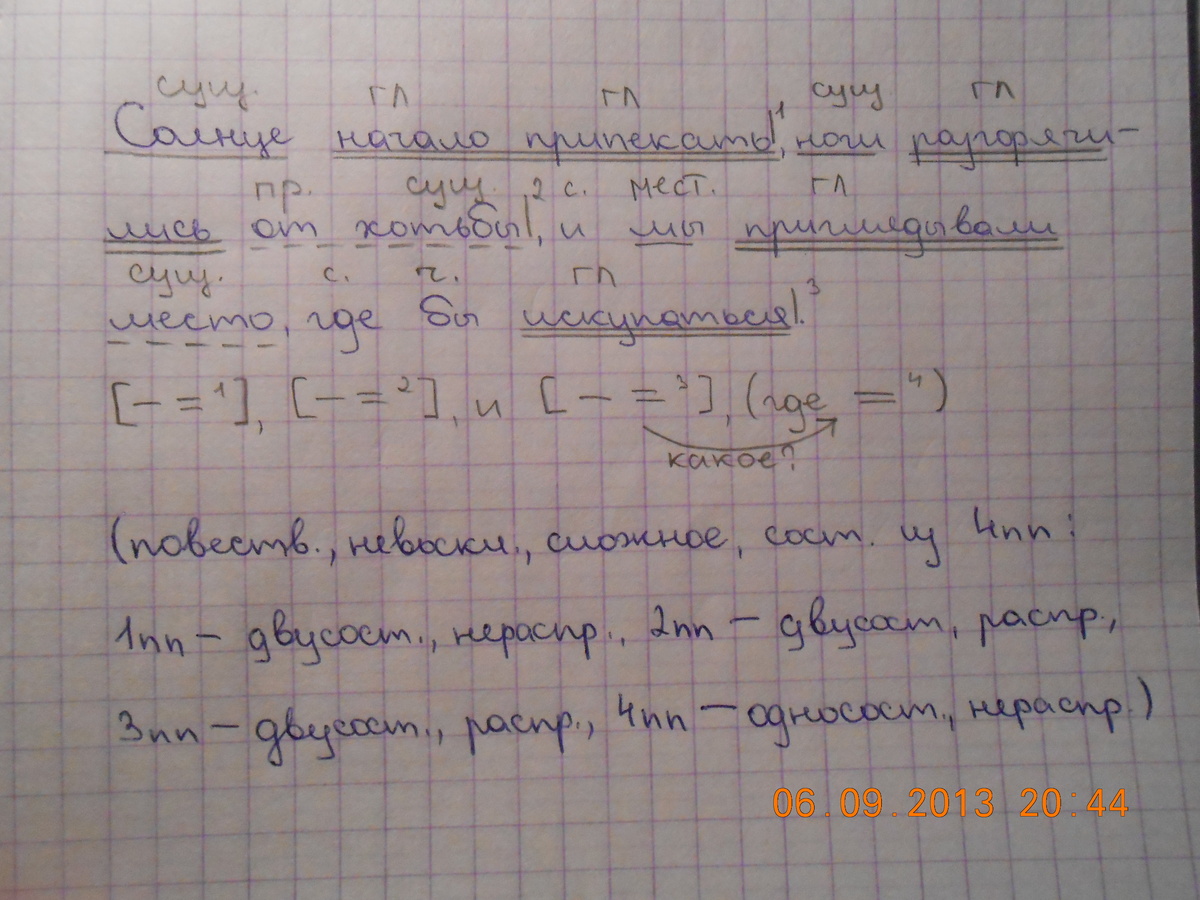 сущ. гл гл сущ гл
Солнце начало припекать|¹, ноги разгорячи-
пр. сущ. 2 с. мест. гл
лись от хотьбы|, и мы приглядывали
сущ. с. ч. гл
место, где бы искупаться|.³
[— = ¹], [— = ²], и [— = ³], (где = ⁴)
какое?
(повеств., невоскл., сложное, сост. из 4пп:
1пп — двусост., нераспр., 2пп — двусост, распр.,
3пп — двусост., распр., 4пп — односост., нераспр.)
06.09.2013 20:44